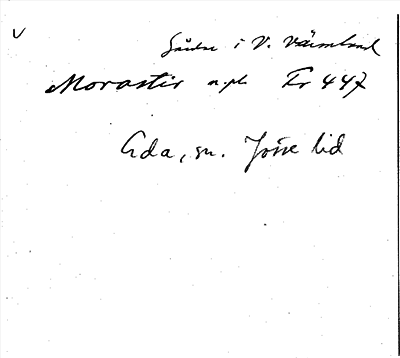 V
i V. Värmland
Morastir n.pl. Fr 447
Eda, sn. Jösse hd